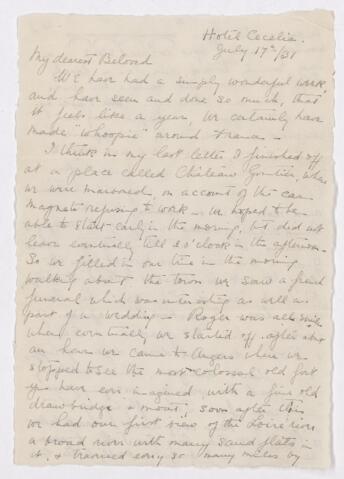 Hotel Cecelia.
July 17th/31
My dearest Beloved
We have had a simply wonderful week
and have seen and done so much, that
it feels like a year, we certainly have
made "whoopie" around France -
I think in my last letter I finished off
at a place called Château Gontier, where
we were marooned, on account of the car
magneto refusing to work - we hoped to be
able to start early in the morning, but did not
leave eventually till 3 o'clock in the afternoon.
So we filled in our time in the morning
walking about the town we saw a
funeral which was interesting as well as
part of a wedding - Roger was all
when eventually we started off, after about
an hour we came to Angers where we
stopped to see the most colossal old fort
you have ever imagined with a fine old
drawbridge & moat, soon after this
we had our first view of the Loire river
a broad river with many sand flats in
it, & traversed so many miles by